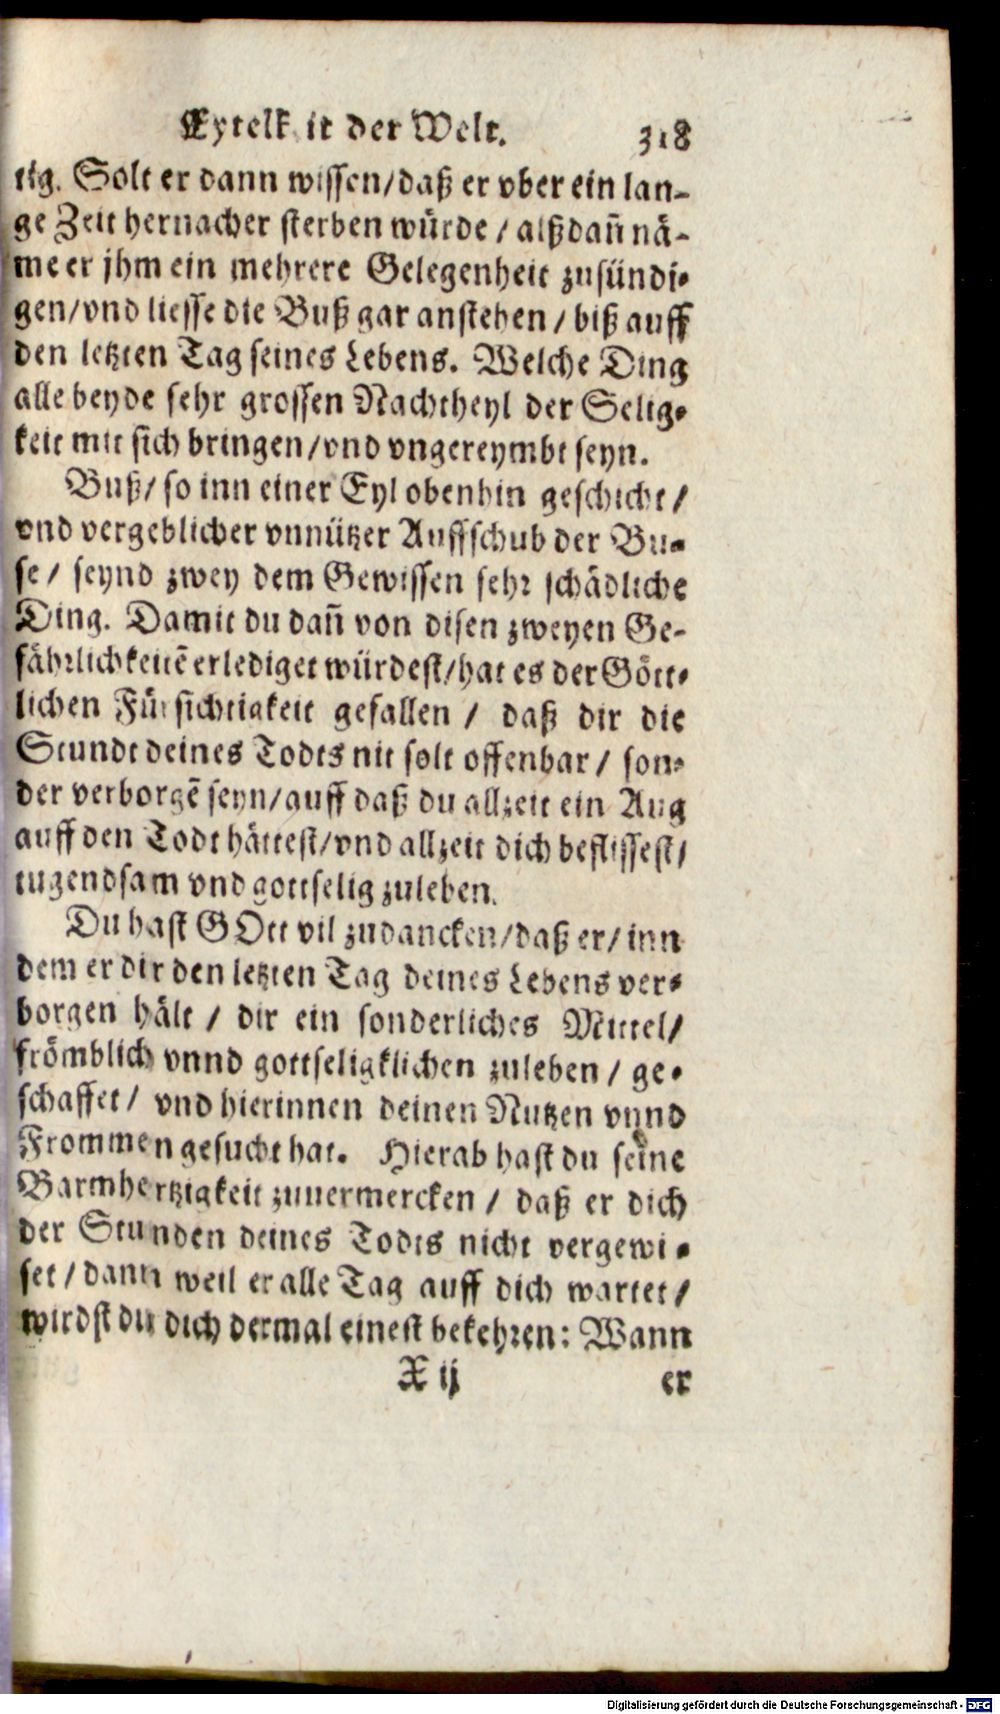 Eytelk it der Welt. 318
tig. Solt er dann wissen/daß er vber ein lan-
ge Zeit hernacher sterben würde / alßdañ nä-
me er jhm ein mehrere Gelegenheit zusündi-
gen/vnd liesse die Buß gar anstehen / biß auff
den letzten Tag seines Lebens. Welche Ding
alle beyde sehr grossen Nachtheyl der Selig-
keit mit sich bringen/vnd vngereymbt seyn.
Buß/ so inn einer Eyl obenhin geschicht /
vnd vergeblicher vnnützer Auffschub der Bu-
se / seynd zwey dem Gewissen sehr schädliche
Ding. Damit du dañ von disen zweyen Ge-
fährlichkeitē erlediget würdest/hat es der Gött-
lichen Fürsichtigkeit gefallen / daß dir die
Stundt deines Todts nit solt offenbar / son-
der verborgē seyn/auff daß du allzeit ein Aug
auff den Todt hättest/vnd allzeit dich beflissest/
tugendsam vnd gottselig zuleben.
Du hast GOtt vil zudancken/daß er/ inn
dem er dir den letzten Tag deines Lebens ver-
borgen hält / dir ein sonderliches Mittel/
frömblich vnnd gottseligklichen zuleben / ge-
schaffet / vnd hierinnen deinen Nutzen vnnd
Frommen gesucht hat. Hierab hast du seine
Barmhertzigkeit zuuermercken / daß er dich
der Stunden deines Todts nicht vergewi-
set / dann weil er alle Tag auff dich wartet /
wirdst du dich dermal einest bekehren: Wann
X ij er
Digitalisierung gefördert durch die Deutsche Forschungsgemeinschaft - DFG